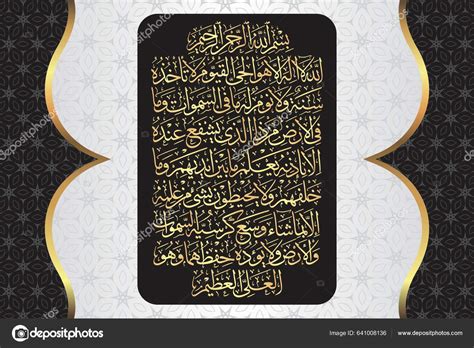 بسم الله الرحمن الرحيم
الله لا إله إلا هو الحي القيوم لا تأخذه
سنة ولا نوم له ما في السموات وما
في الأرض من ذا الذي يشفع عنده
إلا بإذنه يعلم ما بين أيديهم وما
خلفهم ولا يحيطون بشيء من علمه
إلا بما شاء وسع كرسيه السموات
والأرض ولا يؤده حفظهما وهو
العلي العظيم
depositphotos
Image ID: 641008136
www.depositphotos.com